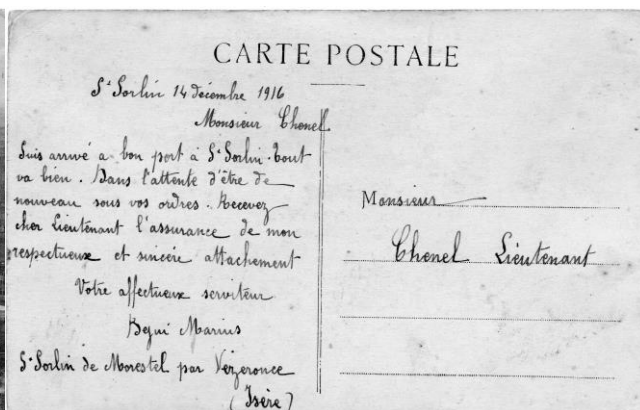 CARTE POSTALE
St Sorlin 14 décembre 1916
Monsieur Chenel
Suis arrivé a bon port à St Sorlin. tout
va bien. Dans l'attente d'être de
nouveau sous vos ordres. Recevez
cher Lieutenant l'assurance de mon
respectueux et sincère attachement
Votre affectueux serviteur
Begui Marius
St Sorlin de Morestel par Vézeronce
(Isère)
Monsieur
Chenel Lieutenant